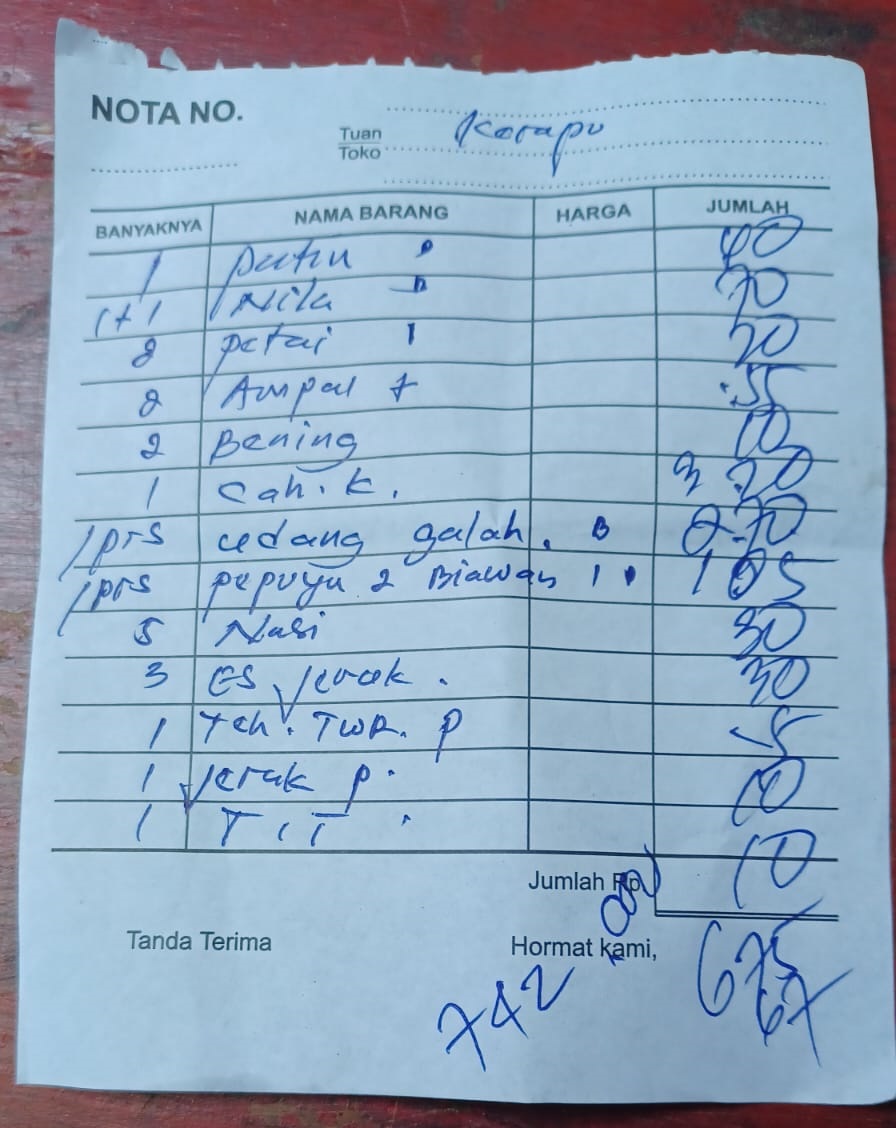 NOTA NO.
Tuan
Toko
Kerapu
BANYAKNYA NAMA BARANG HARGA JUMLAH
1 patin 40
1+1 Nila 70
2 petai 20
2 Ampal 55
2 Bening 10
1 cah.k. 20
1 prs udang galah. B 270
1 prs pepuyu 2 Biawan 1 105
5 Nasi 30
3 ES Jeruk. 30
1 Teh. TWR. P 5
1 Jeruk p. 10
1 T 10
Jumlah Rp.
Tanda Terima Hormat kami,
675
67
742.000